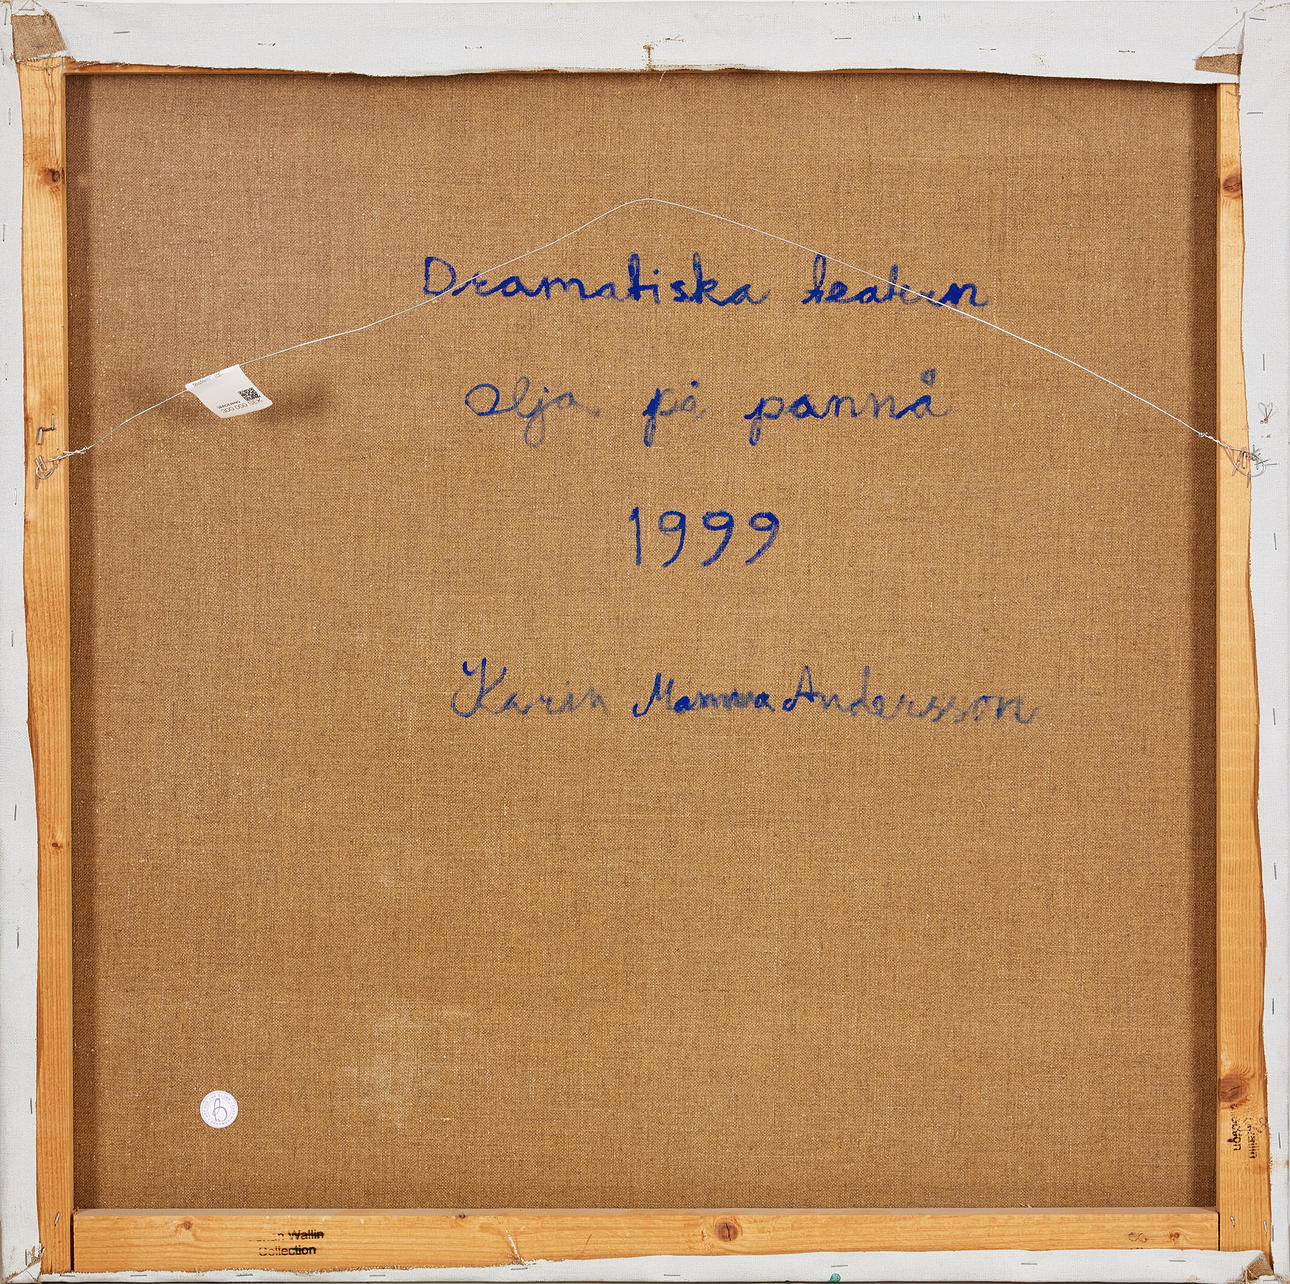 Dramatiska teatern
olja på pannå
1999
Karin Mamma Andersson
300 000 SEK
b
Wallin
Collection